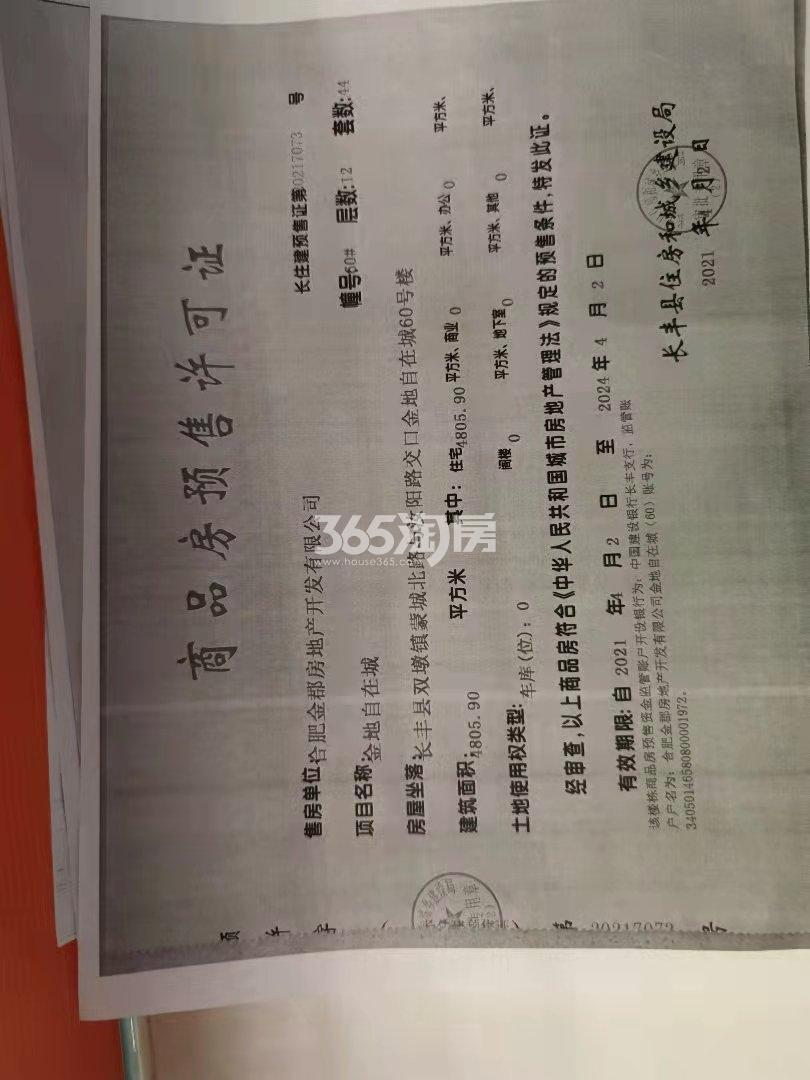 商品房预售许可证
长住建预售证第0217073 号
售房单位:合肥金郡房地产开发有限公司 幢号60# 层数:12 套数:44
项目名称:金地自在城
房屋坐落:长丰县双墩镇蒙城北路与阳路交口金地自在城60号楼
建筑面积:4805.90 平方米 其中: 住宅4805.90平方米、商业 0 平方米、办公 0 平方米、
土地使用权类型: 车库(位): 0 阁楼 0 平方米、地下室0 平方米、其他 0 平方米、
经审查,以上商品房符合《中华人民共和国城市房地产管理法》规定的预售条件,特发此证。
有效期限:自 2021 年4 月 2 日 至 2024 年 4 月 2 日
该楼栋商品房预售资金监管账户开设银行为: 中国建设银行长丰支行, 监管账
户户名为: 合肥金郡房地产开发有限公司金地自在城(60)账号为:
34050146580800001972。
长丰县住房和城乡建设局
2021 年4月2日
第 20217073 号
365淘房
www.house365.com